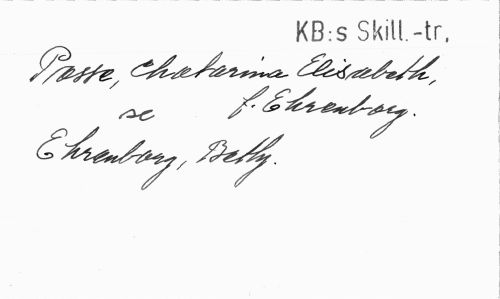 KB:s Skill.-tr.
Posse, Chatarina Elisabeth,
se f. Ehrenborg.
Ehrenborg, Betty.